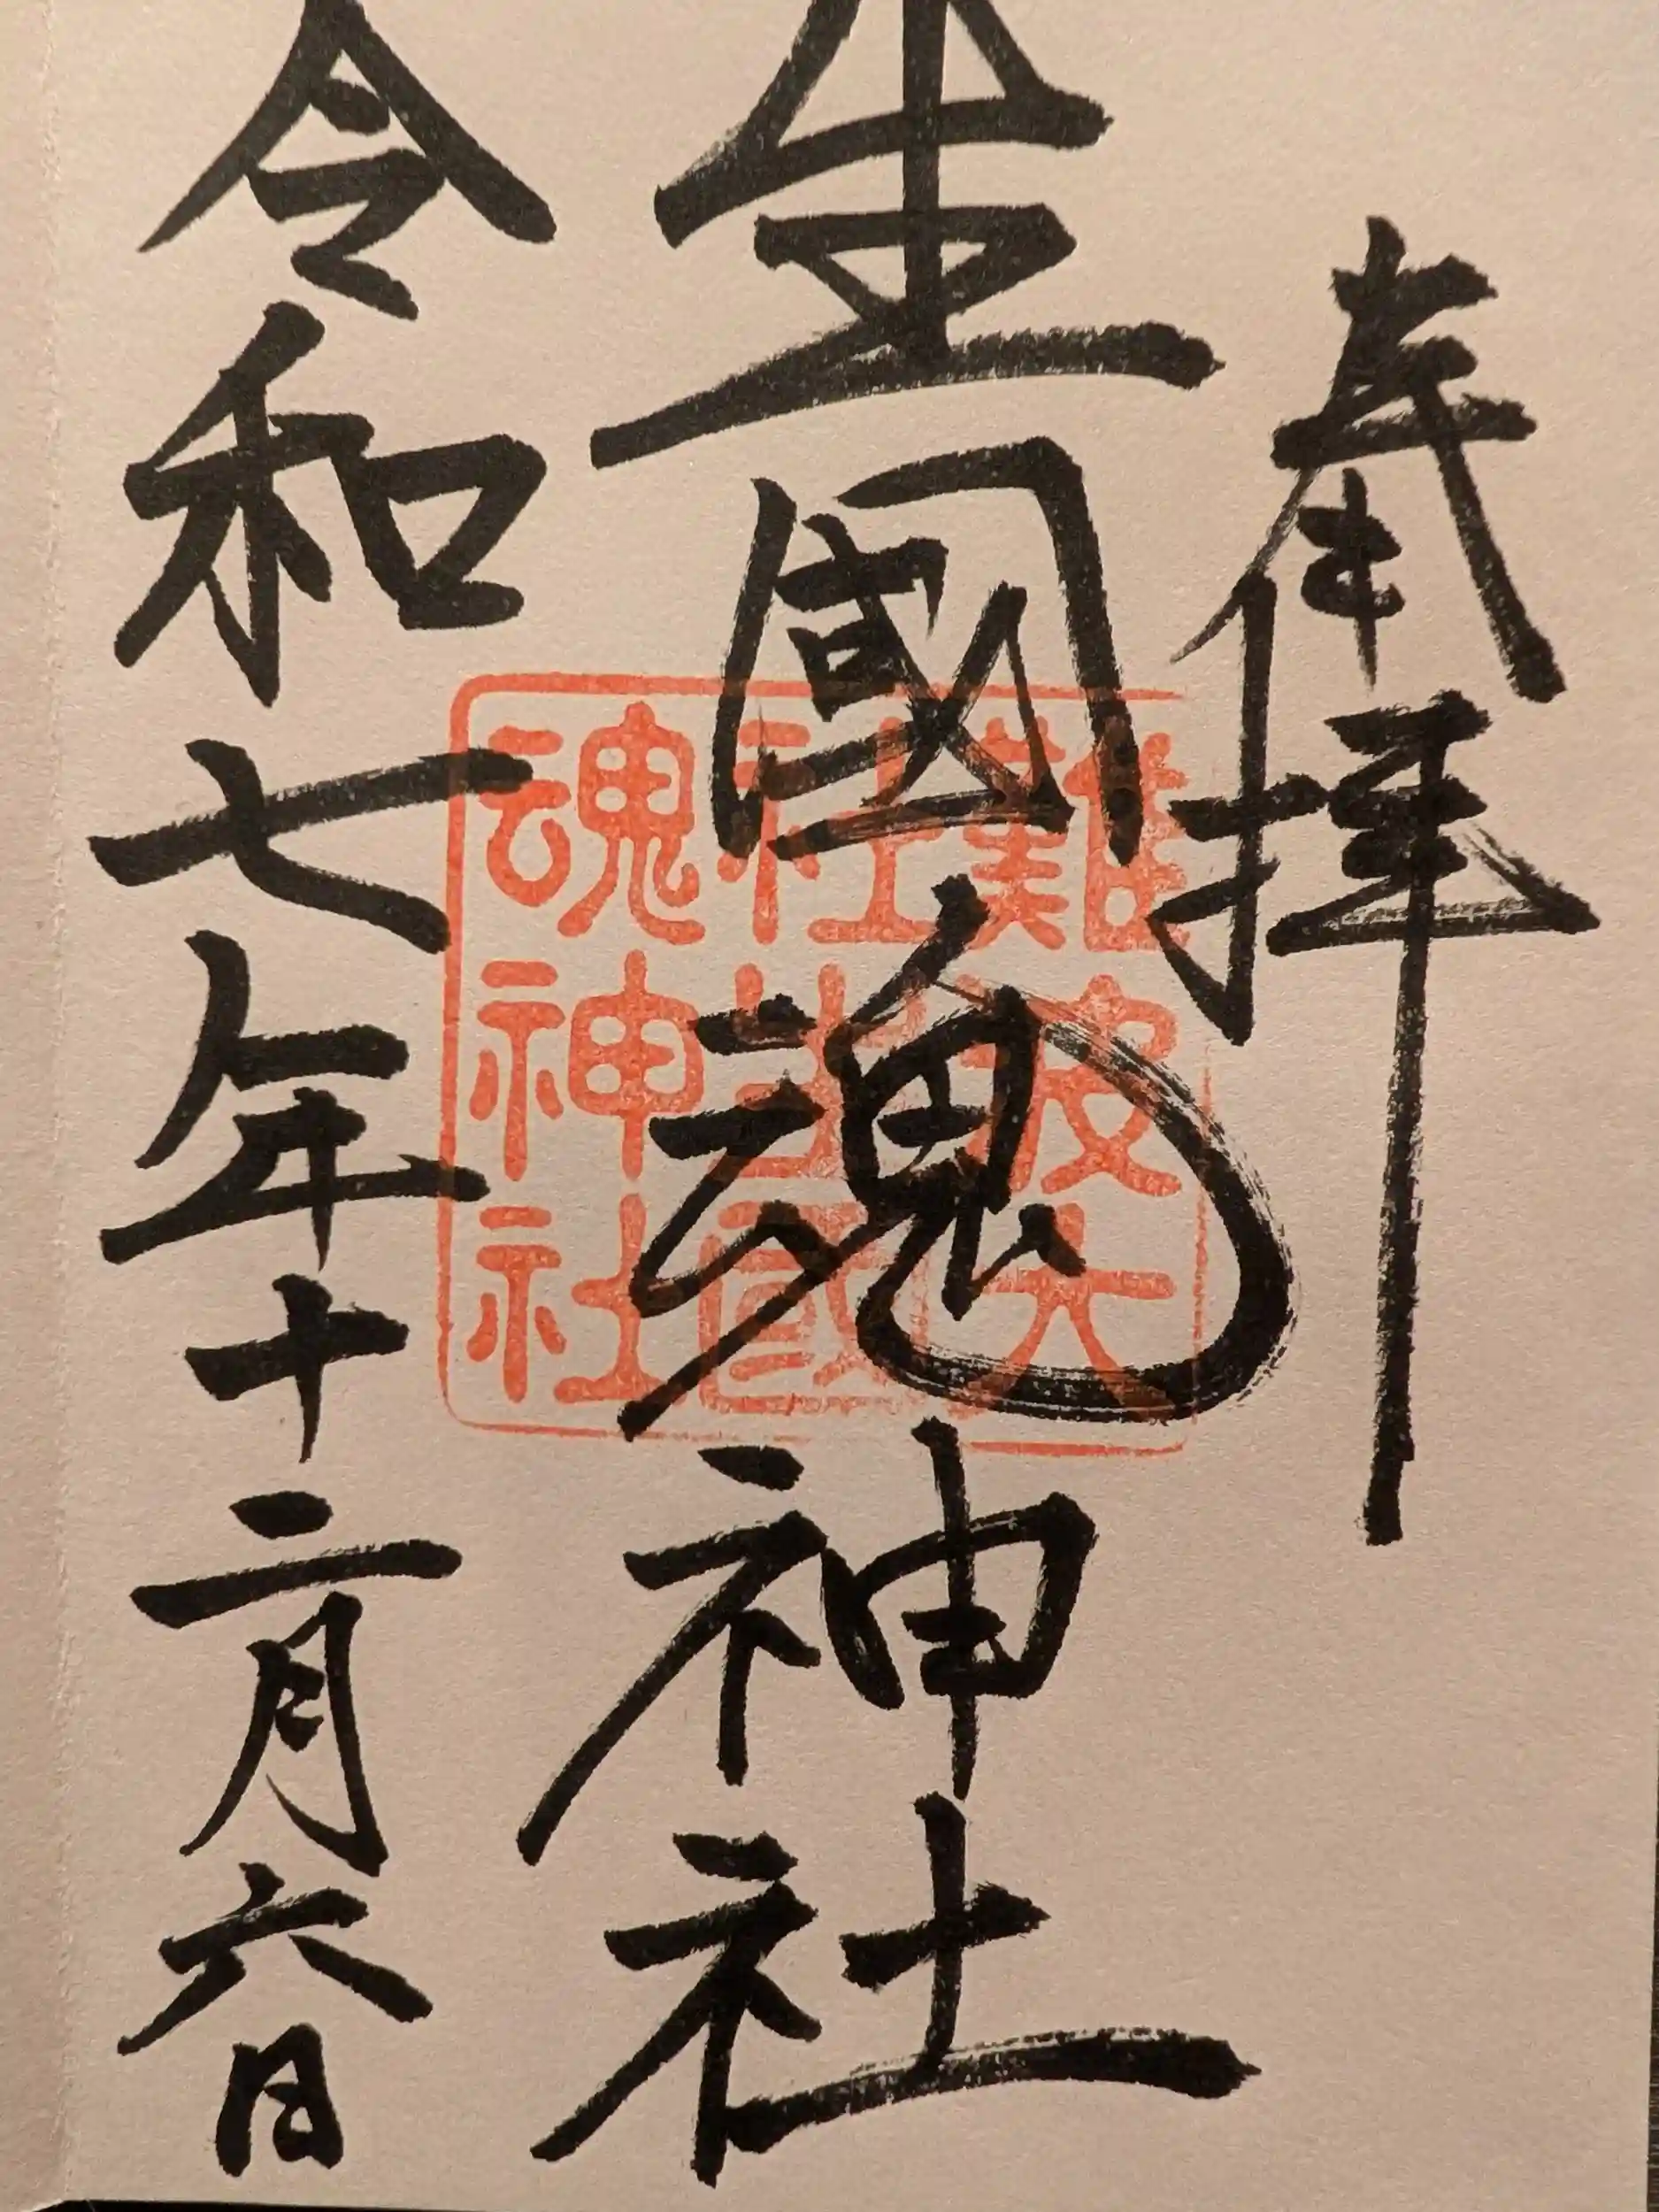 奉拝
生國魂神社
令和七年十二月六日
難波大
社生國
魂神社